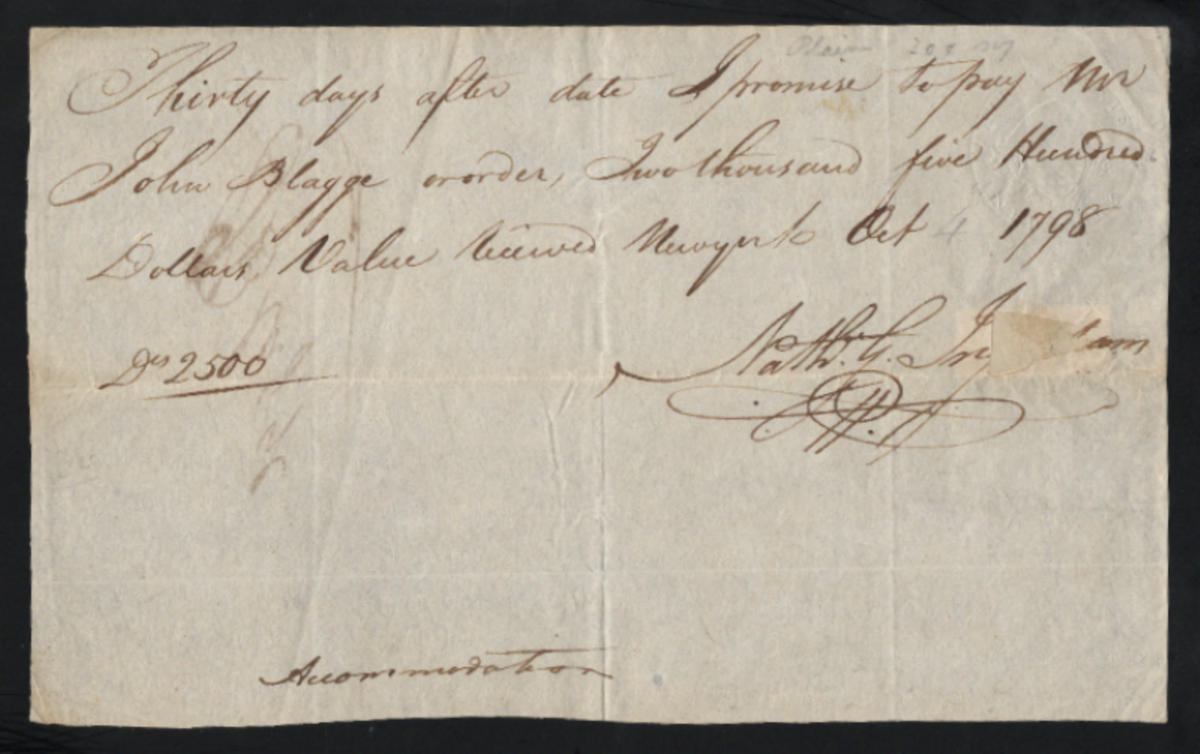 Thirty days after date I promise to pay Mr
John Blagge or order, Two thousand five Hundred
Dollars Value received Newyork Oct 4 1798
Nath. G. In am
Ds 2500
Accommodation